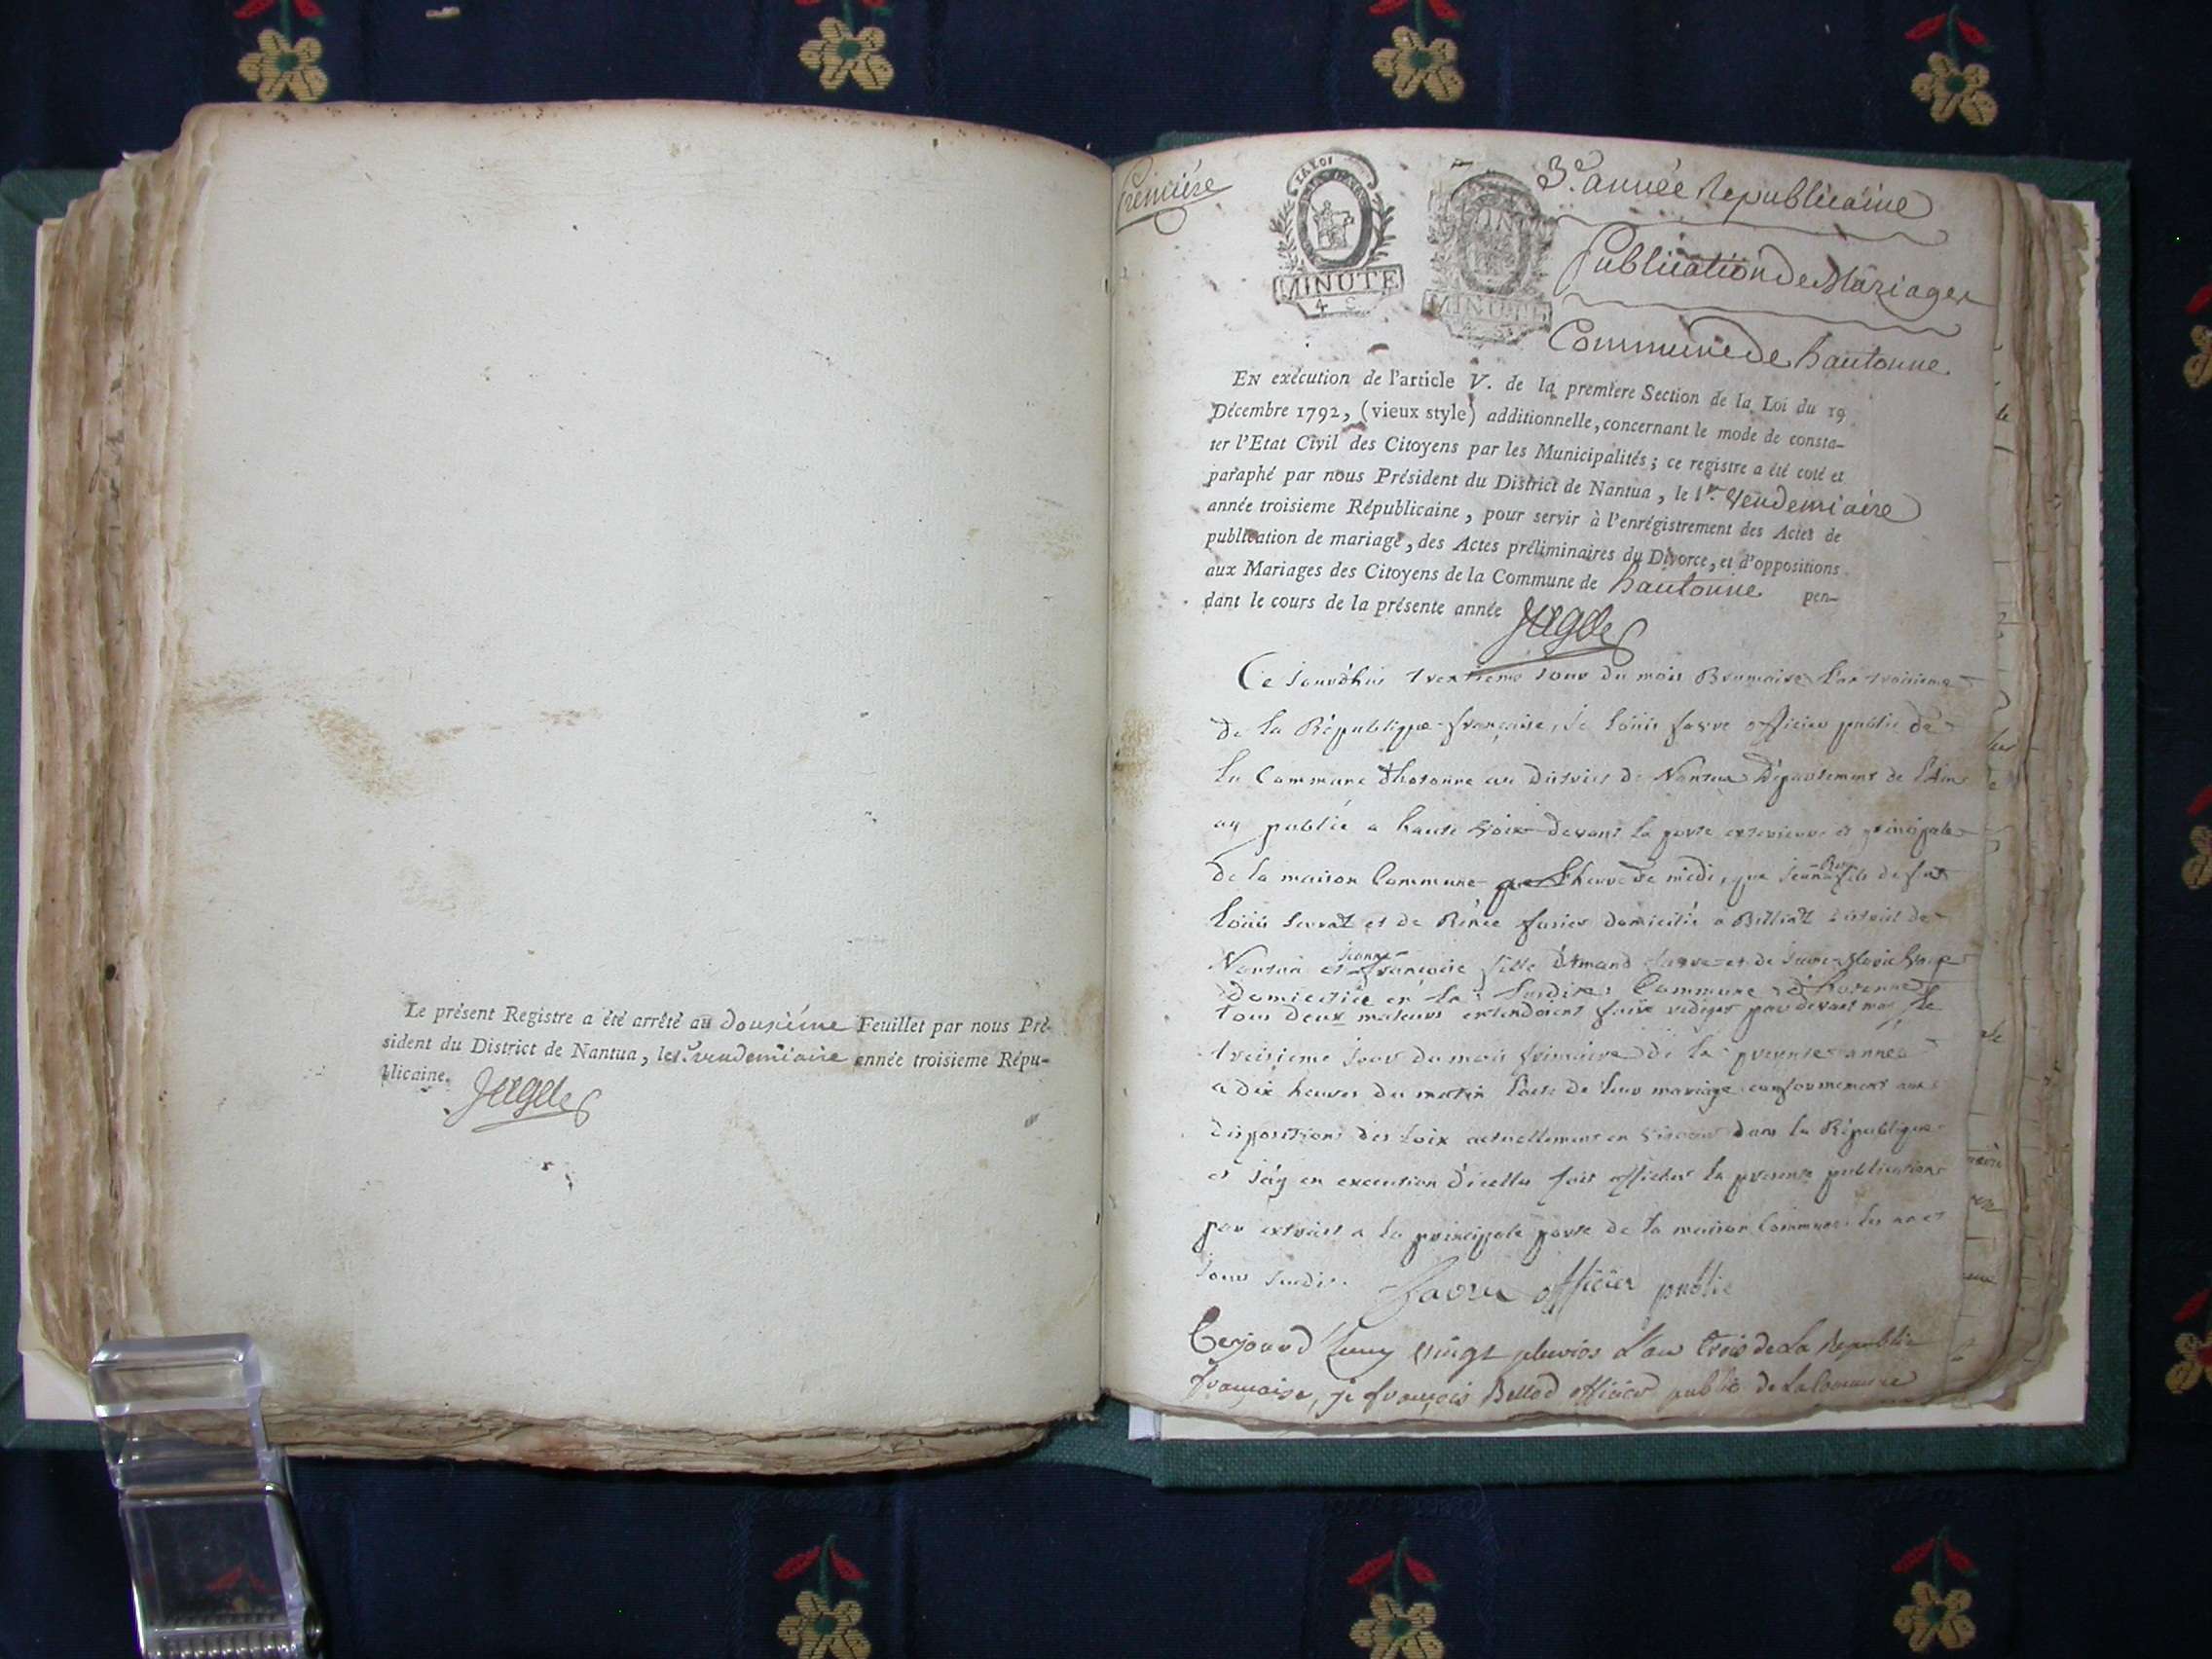 Le présent Registre a été arrêté au douzième Feuillet par nous Pré-
sident du District de Nantua, le 1er vendemiaire année troisieme Répu-
blicaine.
Première
MINUTE
4 S
MINUTE
3e année Republicaine
Publication de Mariages
Commune de hautonne
EN exécution de l'article V. de la premiere Section de la Loi du 19
Décembre 1792, (vieux style) additionnelle, concernant le mode de consta-
ter l'Etat Civil des Citoyens par les Municipalités; ce registre a été coté et
paraphé par nous Président du District de Nantua, le 1er. Vendemiaire
année troisieme Républicaine, pour servir à l'enrégistrement des Actes de
publication de mariage, des Actes préliminaires du Divorce, et d'oppositions
aux Mariages des Citoyens de la Commune de hautonne pen-
dant le cours de la présente année
Ce jourdhui trentieme jour du mois Brumaire l'an troisieme
de la République française, Je loüis favre officier public de
la Commune d'hotonne au district de Nantua Département de l'Ain
ay publié a haute voix devant la porte exterieure et principale
de la maison Commune a l'heure de midi, que fils de feu
loüis et de Renée domicilié a Billiat district de
Nantua et Jeanne françoise fille favre et de
domiciliée en la susdite Commune d'hotonne
tous deux majeurs entendoient faire rediger par devant moi le
treisieme jour du mois frimaire de la presente année
a dix heures du matin l'acte de leur mariage conformement aux
dispositions des loix actuellement en vigueur dans la République
et j'ay en execution d'icelles fait afficher la presente publication
par extrait a la principale porte de la maison Commune les an et
jour susdit. favre officier public
Cejourd'huuy vingt pluvios L'an trois de La Republic
francaise, je françois Bellod officier public de La Commune